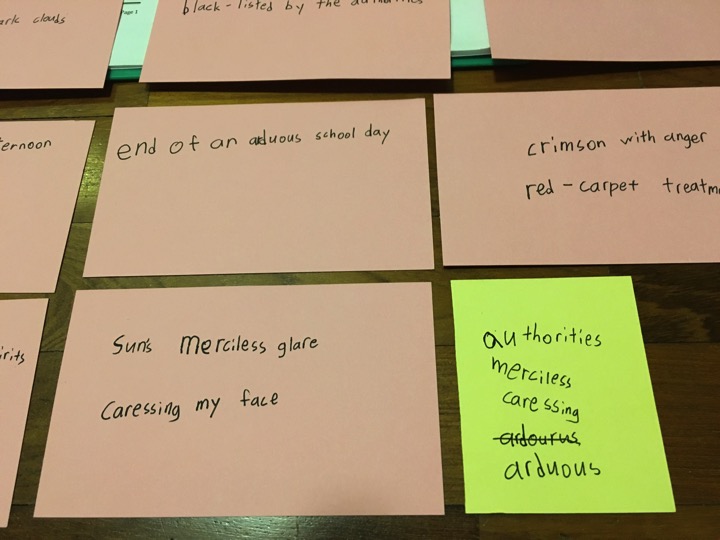 clouds
Page 1
black-listed by the authorities
end of an arduous school day
crimson with anger
red-carpet
Sun's merciless glare
Caressing my face
authorities
merciless
caressing
ardourus
arduous